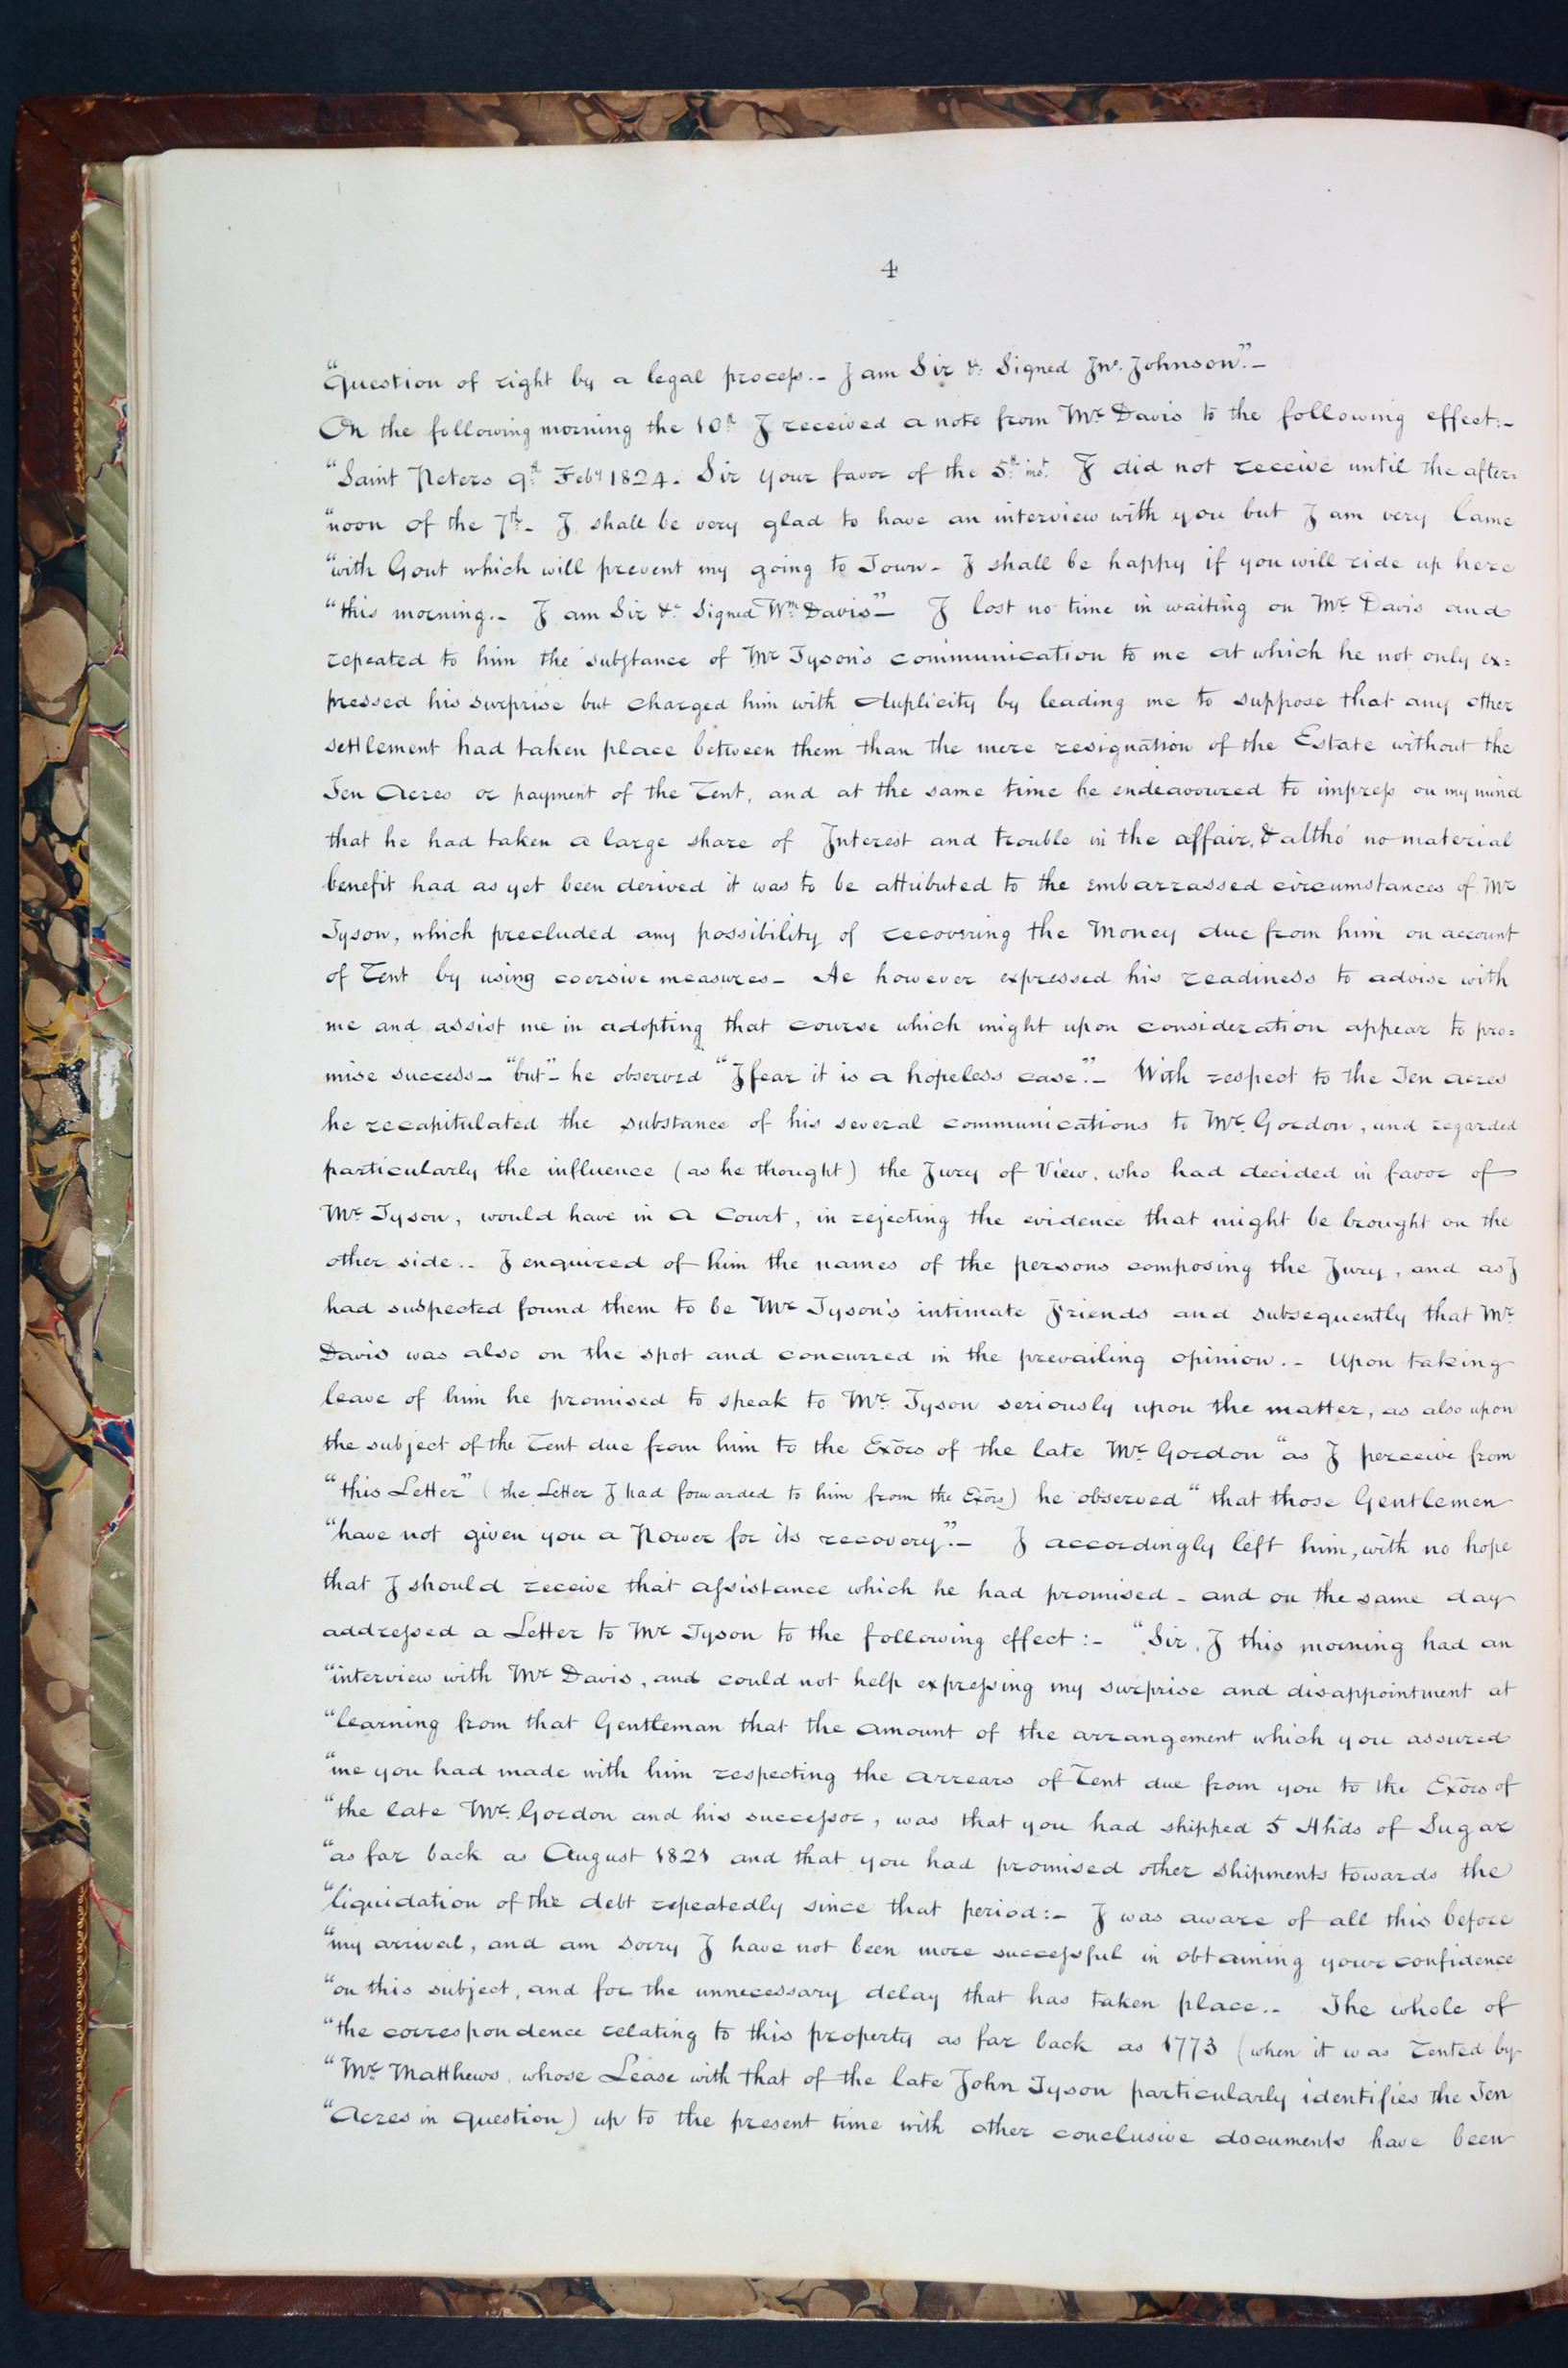 4
"Question of right by a legal process.- I am Sir &c: Signed Jno. Johnson".-
On the following morning the 10th I received a note from Mr Davis to the following effect:-
"Saint Peters 9th Feby 1824. Sir your favor of the 5th inst. I did not receive until the after=
"noon of the 7th- I shall be very glad to have an interview with you but I am very lame
"with Gout which will prevent my going to Town- I shall be happy if you will ride up here
"this morning.- I am Sir &c Signed Wm Davis"- I lost no time in waiting on Mr Davis and
repeated to him the substance of Mr Tyson's communication to me at which he not only ex=
pressed his surprise but charged him with duplicity by leading me to suppose that any other
settlement had taken place between them than the mere resignation of the Estate without the
Ten Acres or payment of the Rent, and at the same time he endeavoured to impress on my mind
that he had taken a large share of Interest and trouble in the affair, & altho' no material
benefit had as yet been derived it was to be attributed to the embarrassed circumstances of Mr
Tyson, which precluded any possibility of recovering the Money due from him on account
of Rent by using coersive measures- He however expressed his readiness to advise with
me and assist me in adopting that course which might upon consideration appear to pro=
mise success- "but"- he observed "I fear it is a hopeless case".- With respect to the Ten acres
he recapitulated the substance of his several communications to Mr. Gordon, and regarded
particularly the influence (as he thought) the Jury of View, who had decided in favor of
Mr Tyson, would have in a Court, in rejecting the evidence that might be brought on the
other side.. I enquired of him the names of the persons composing the Jury, and as I
had suspected found them to be Mr Tyson's intimate Friends and subsequently that Mr
Davis was also on the spot and concurred in the prevailing opinion.- Upon taking
leave of him he promised to speak to Mr. Tyson seriously upon the matter, as also upon
the subject of the Rent due from him to the Exōrs of the late Mr Gordon "as I perceive from
"this Letter" (the Letter I had forwarded to him from the Exōrs) he observed "that those Gentlemen
"have not given you a Power for its recovery".- I accordingly left him, with no hope
that I should receive that assistance which he had promised - and on the same day
addressed a Letter to Mr Tyson to the following effect:- "Sir, I this morning had an
"interview with Mr Davis, and could not help expressing my surprise and disappointment at
"learning from that Gentleman that the amount of the arrangement which you assured
"me you had made with him respecting the arrears of Rent due from you to the Exōrs of
"the late Mr. Gordon and his successor, was that you had shipped 5 Hhds of Sugar
"as far back as August 1821 and that you had promised other shipments towards the
"liquidation of the debt repeatedly since that period:- I was aware of all this before
"my arrival, and am sorry I have not been more successful in obtaining your confidence
"on this subject, and for the unnecessary delay that has taken place.. The whole of
"the correspondence relating to this property as far back as 1773 (when it was rented by
"Mr Matthews, whose Lease with that of the late John Tyson particularly identifies the Ten
"Acres in question) up to the present time with other conclusive documents have been